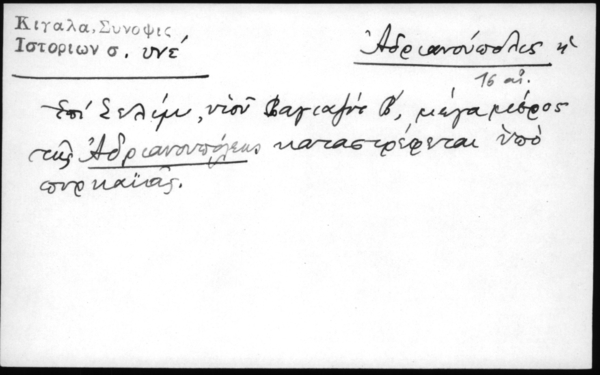 Κιγαλα, Συνοψις
Ιστοριων σ. υνέ
Ἁδριανούπολις κ'
16 αἰ.
Ἐπί Σελίμ, υἱοῦ Βαγιαζήτ Β', μέγα μέρος
τῆς Ἁδριανουπόλεως καταστρέφεται ὑπὸ
πυρκαϊᾶς.